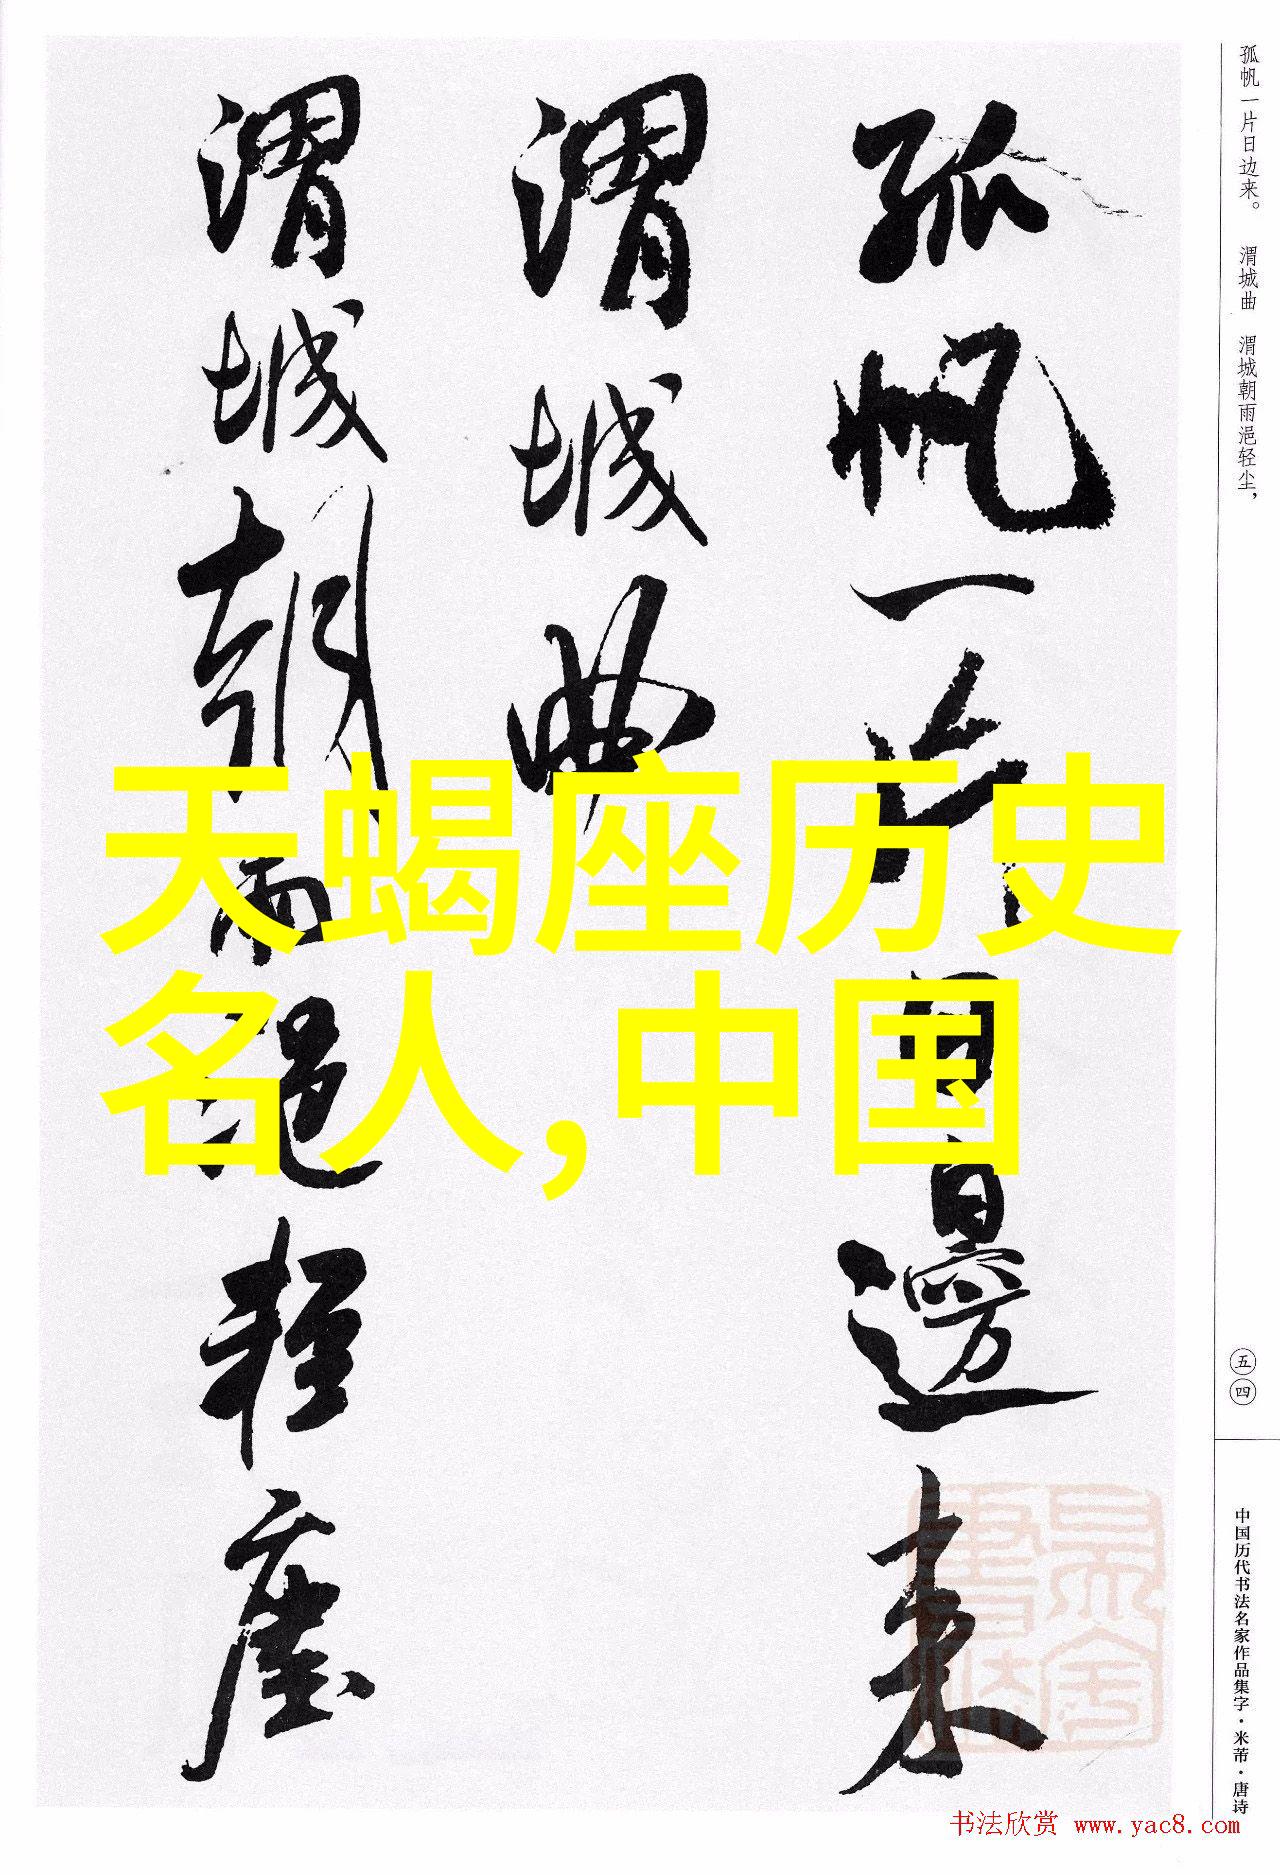 孤帆一片日边来。 渭城曲 渭城朝雨浥轻尘，
孤帆一片日邊来
渭城曲
渭城朝雨浥轻塵
天蝎座历史
名人,中国
五四
中国历代书法名家作品集字·米芾·唐诗
书法欣赏 www.yac8.com